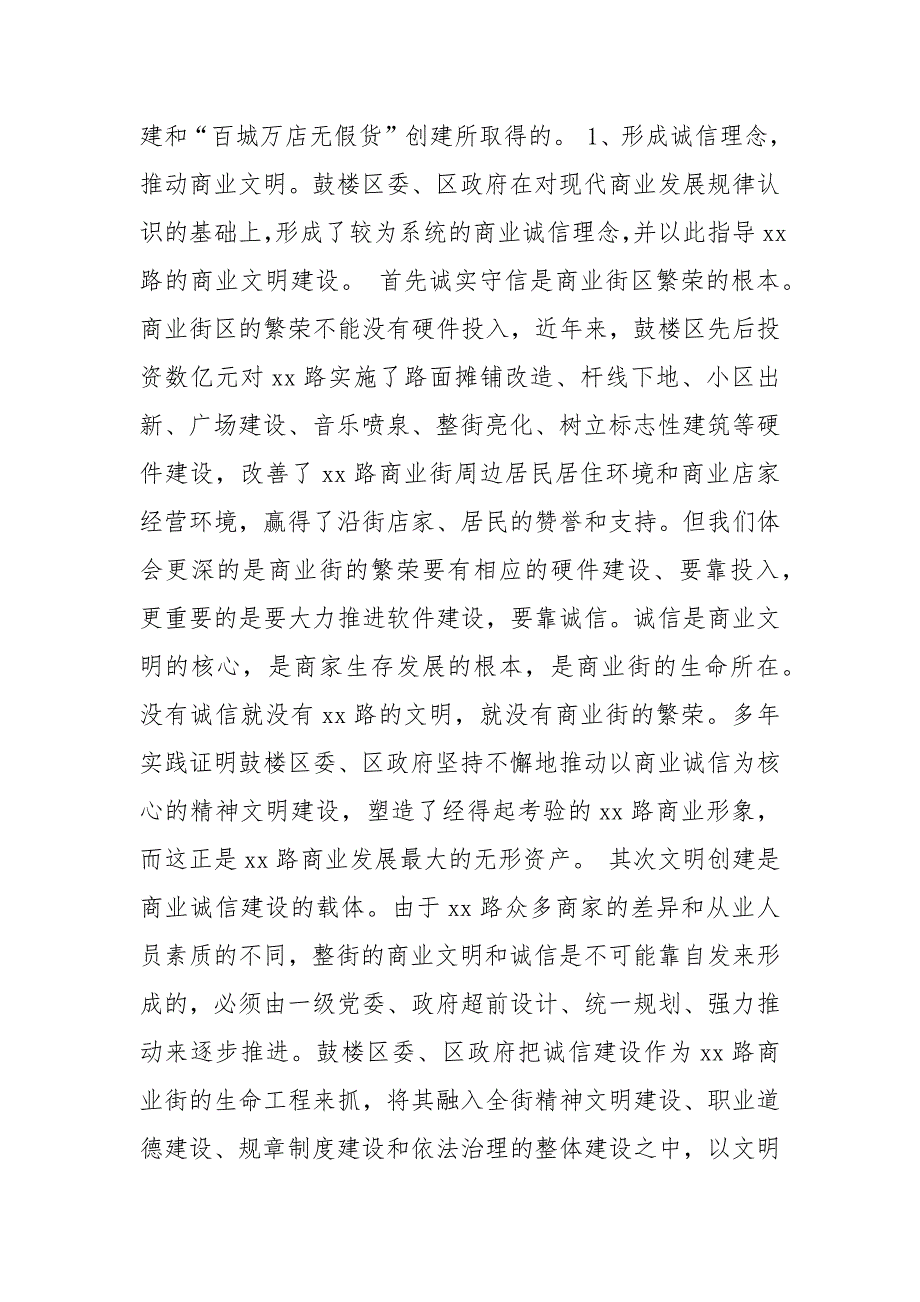 建和“百城万店无假货”创建所取得的。 1、形成诚信理念，
推动商业文明。鼓楼区委、区政府在对现代商业发展规律认
识的基础上,形成了较为系统的商业诚信理念,并以此指导 xx
路的商业文明建设。 首先诚实守信是商业街区繁荣的根本。
商业街区的繁荣不能没有硬件投入，近年来，鼓楼区先后投
资数亿元对 xx 路实施了路面摊铺改造、杆线下地、小区出
新、广场建设、音乐喷泉、整街亮化、树立标志性建筑等硬
件建设，改善了 xx 路商业街周边居民居住环境和商业店家
经营环境，赢得了沿街店家、居民的赞誉和支持。但我们体
会更深的是商业街的繁荣要有相应的硬件建设、要靠投入，
更重要的是要大力推进软件建设，要靠诚信。诚信是商业文
明的核心，是商家生存发展的根本，是商业街的生命所在。
没有诚信就没有 xx 路的文明，就没有商业街的繁荣。多年
实践证明鼓楼区委、区政府坚持不懈地推动以商业诚信为核
心的精神文明建设，塑造了经得起考验的 xx 路商业形象，
而这正是 xx 路商业发展最大的无形资产。 其次文明创建是
商业诚信建设的载体。由于 xx 路众多商家的差异和从业人
员素质的不同，整街的商业文明和诚信是不可能靠自发来形
成的，必须由一级党委、政府超前设计、统一规划、强力推
动来逐步推进。鼓楼区委、区政府把诚信建设作为 xx 路商
业街的生命工程来抓，将其融入全街精神文明建设、职业道
德建设、规章制度建设和依法治理的整体建设之中，以文明